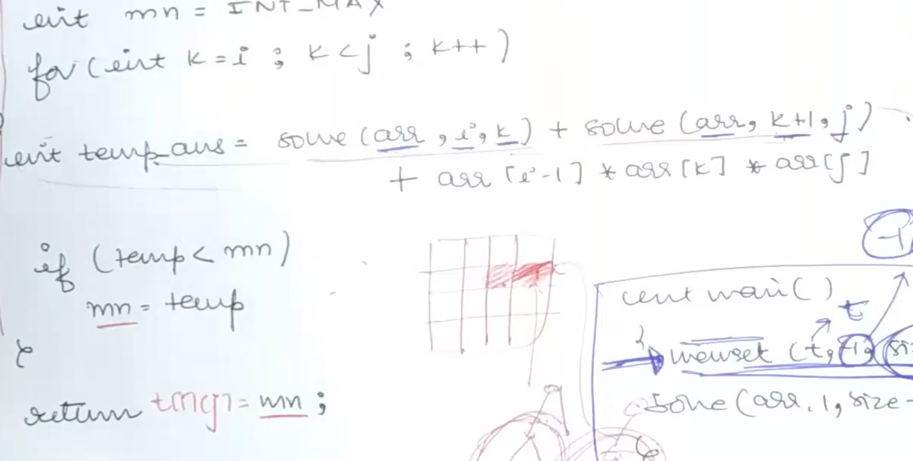 int mn = INT_MAX
for (int k=i ; k<j ; k++)
int temp_ans = solve (arr, i, k) + solve (arr, k+1, j)
+ arr [i-1] * arr[k] * arr[j]
if (temp < mn)
mn = temp
}
return = mn ;
-1
int main()
{
t
memset (t, -1, si
solve (arr, 1, size-
}